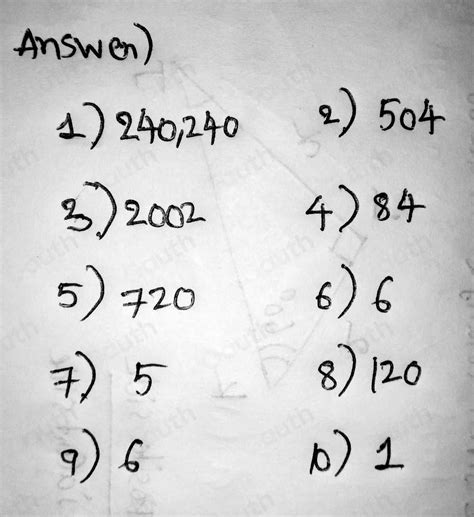 Answer)
1) 240,240 2) 504
3) 2002 4) 84
5) 720 6) 6
7) 5 8) 120
9) 6 10) 1